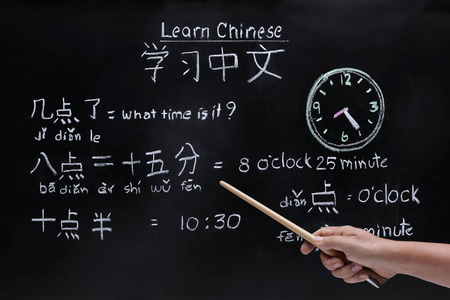 Learn Chinese
学习中文
12
3
6
9
几点了 = what time is it ?
jǐ diǎn le
八点二十五分 = 8 o'clock 25 minute
bā diǎn èr shí wǔ fēn
diǎn 点 = o'clock
十点半 = 10:30
fēn minute